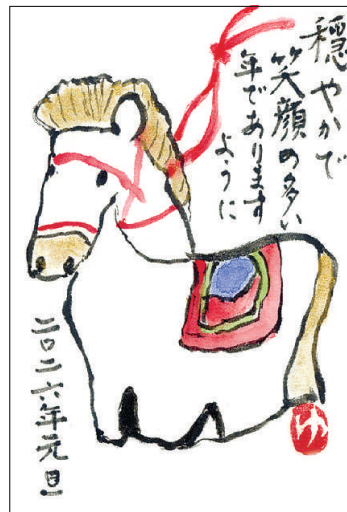 穏やかで
笑顔の多い
年であります
ように
二〇二六年元旦
ゆ